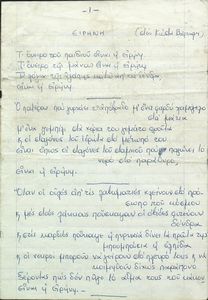 - 1 -
ΕΙΡΗΝΗ (στον Κώστα Βάρναλη)
Τ' όνειρο του παιδιού είναι η ειρήνη.
Τ' όνειρο της μάνας είναι η ειρήνη
Τα λόγια της αγάπης κάτω απ' τα δέντρα,
είναι η ειρήνη.
Ο πατέρας που γυρνάει τ' απόβραδο μ' ένα φαρδύ χαμόγελο
στα μάτια
μ' ένα ζεμπίλι στα χέρια του γεμάτο φρούτα
κ' οι σταγόνες του ιδρώτα στο μέτωπό του
είναι όπως οι σταγόνες του σταμνιού που παγώνει το
νερό στο παράθυρο,
είναι η ειρήνη.
Όταν οι ουλές απ' τις λαβωματιές κλείνουν στο πρό-
σωπο του κόσμου
και μες στους λάκκους που 'σκαψαν οι οβίδες φυτεύουμε
δέντρα
και στις καρδιές που 'καψε η πυρκαϊά δένει τα πρώτα της
μπουμπούκια η ελπίδα
κ' οι νεκροί μπορούν να γείρουν στο πλευρό τους και να
κοιμηθούν δίχως παράπονο
ξέροντας πως δεν πήγε το αίμα τους του κάκου
είναι η ειρήνη.